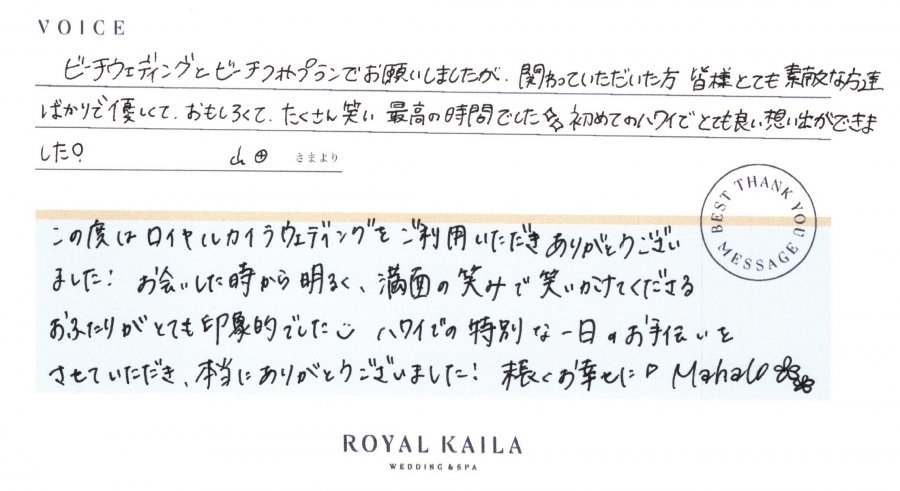 VOICE
ビーチウェディングとビーチフォトプランでお願いしましたが、関わっていただいた方 皆様とても素敵な方達
ばかりで優しくて、おもしろくて、たくさん笑い 最高の時間でした☆初めてのハワイでとても良い想い出ができま
した♡
さまより
BEST THANK YOU MESSAGE
この度はロイヤルカイラウェディングをご利用いただきありがとうござい
ました! お会いした時から明るく、満面の笑みで笑いかけてくださる
おふたりがとても印象的でした ハワイでの特別な一日のお手伝いを
させていただき、本当にありがとうございました! 末長くお幸せに♡ Mahalo
ROYAL KAILA
WEDDING & SPA